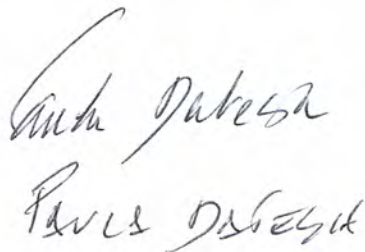 Paula Datesh
PAULA DATESH